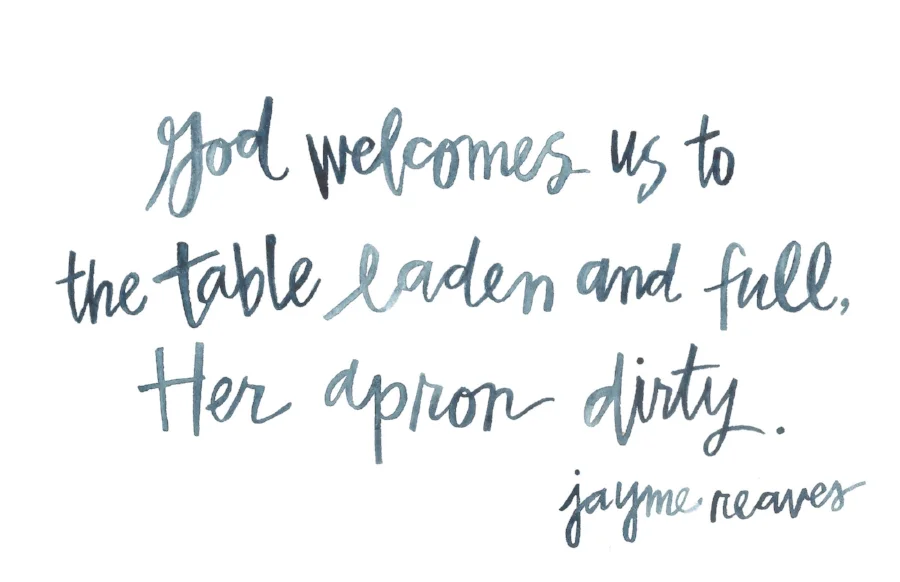 God welcomes us to
the table laden and full,
Her apron dirty.
jayme reaves